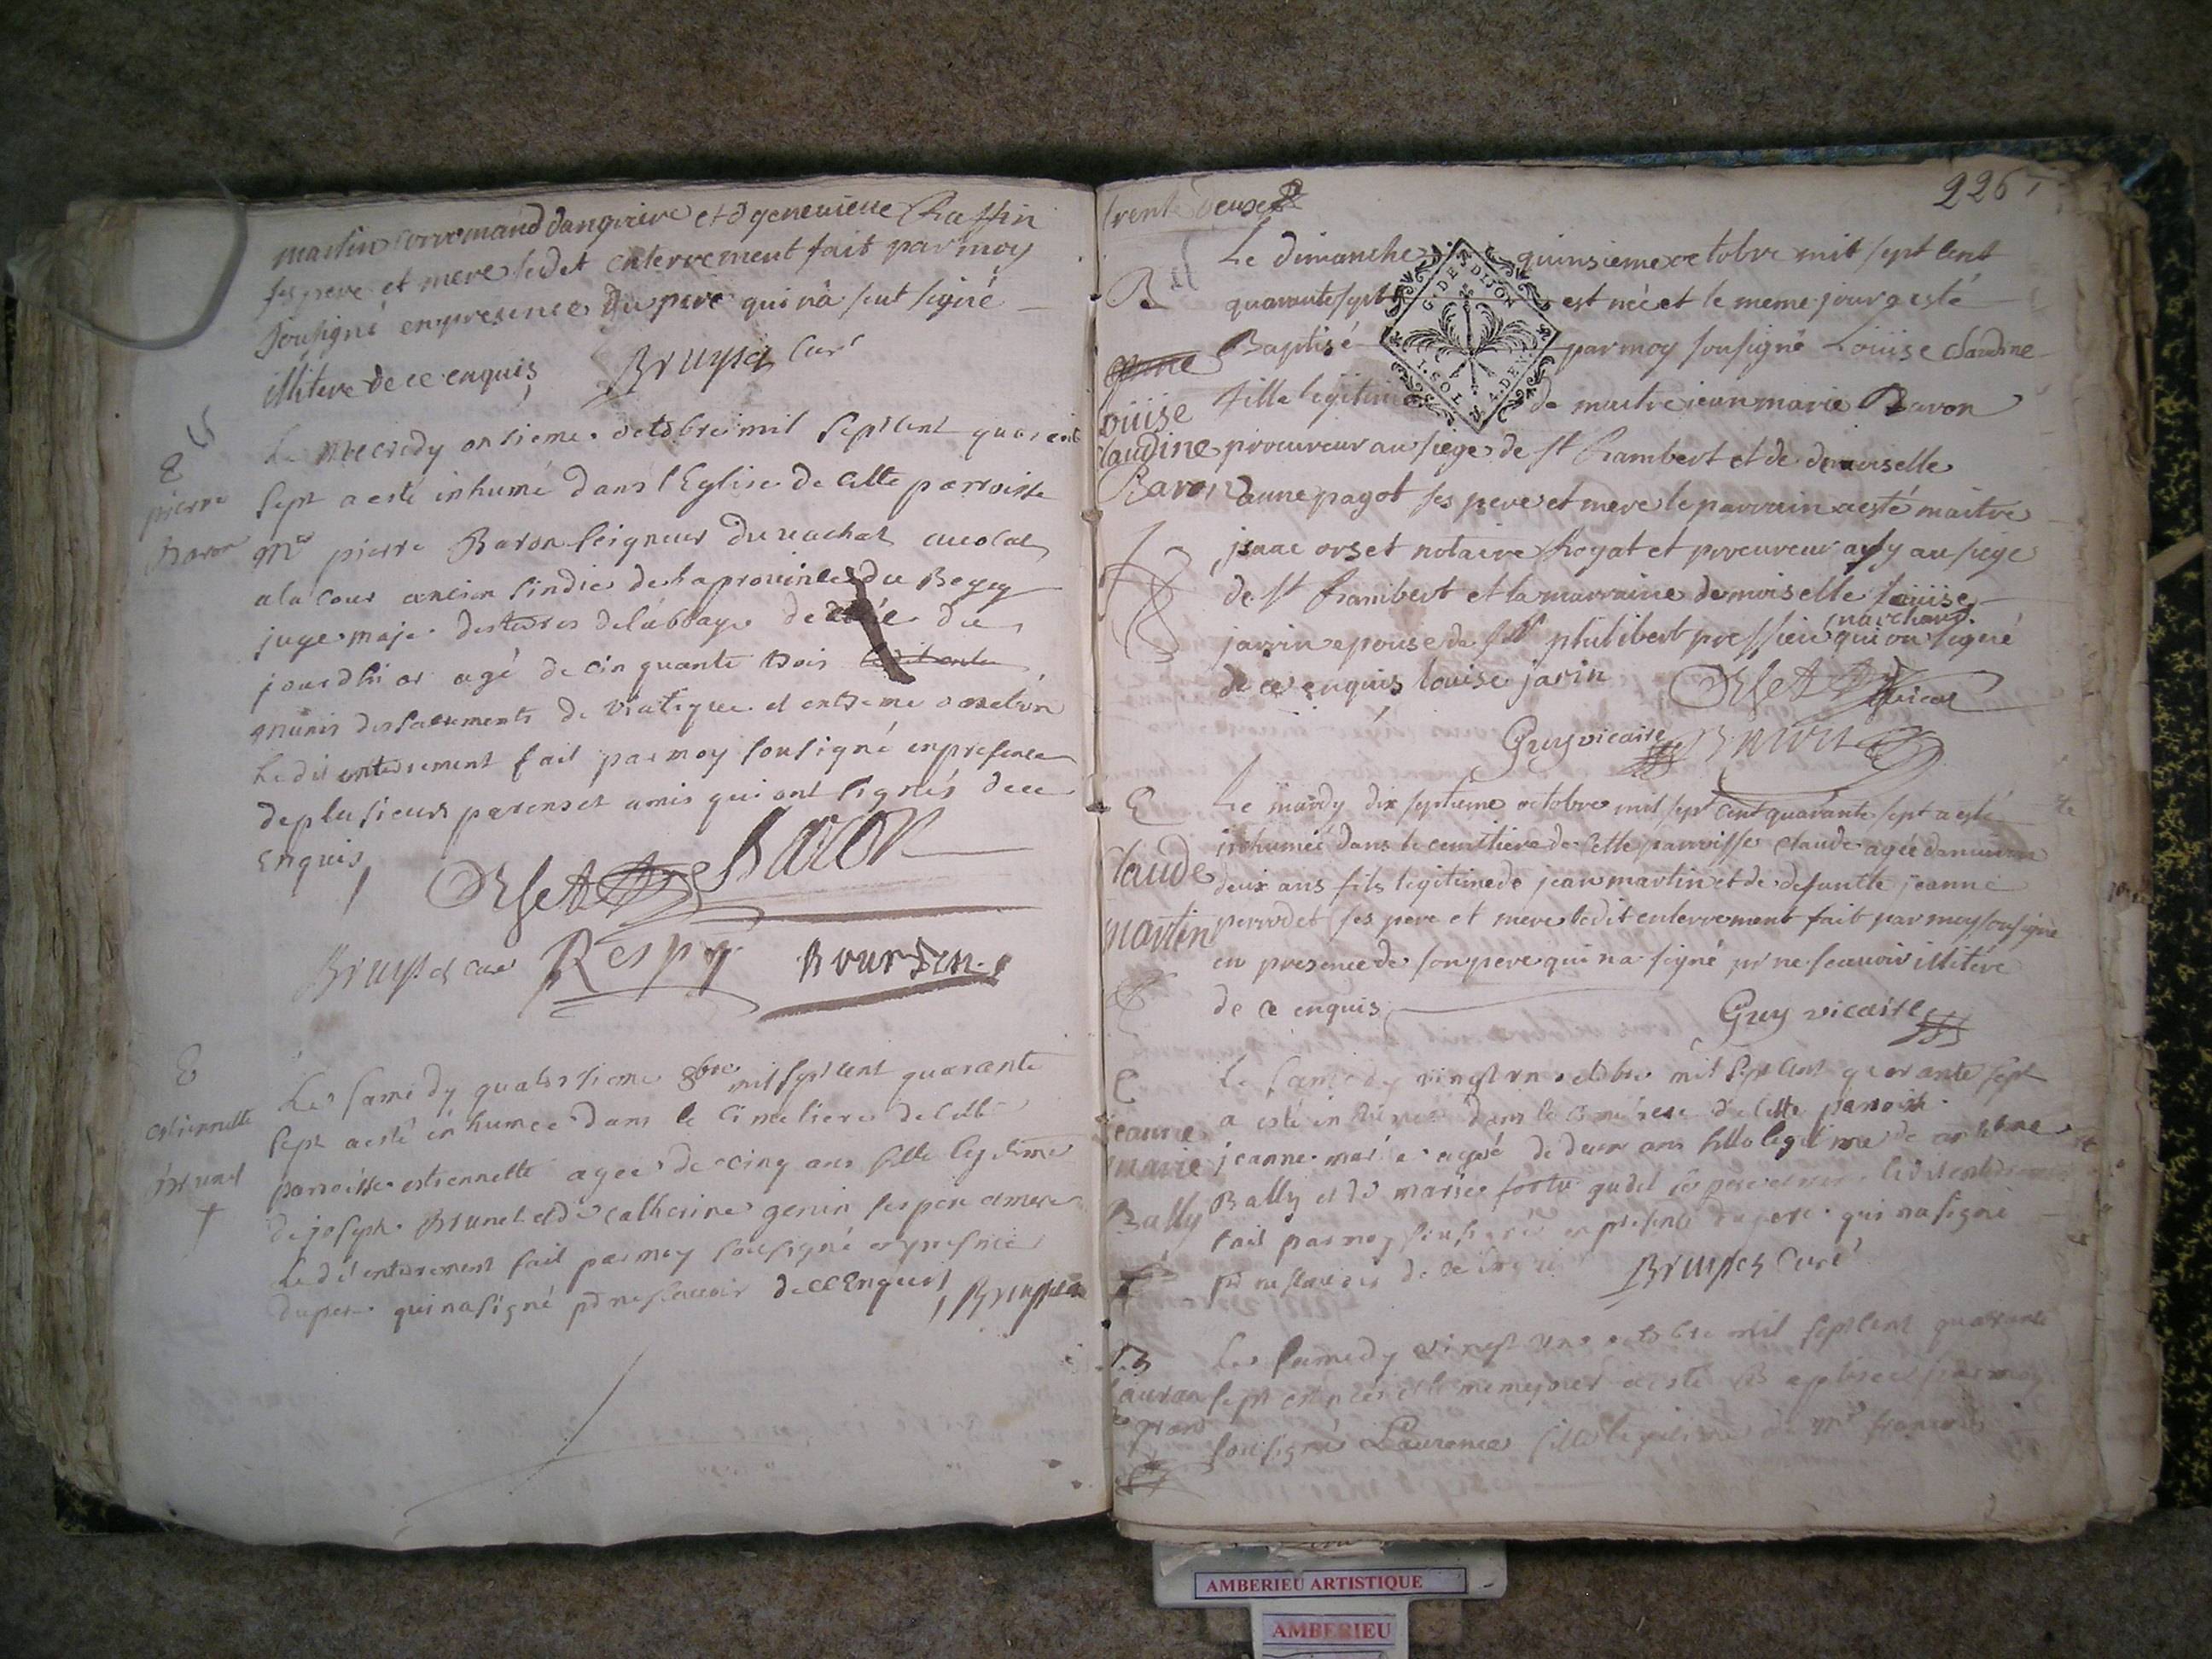 martin dangrieve et d genevieve Chaffin
ses pere et mere ledit enterrement fait par moy
sousigné en presence du pere qui n'a sçut signé
illitere de ce enquis Bruyset Curé
E
pierre
Baron
Le Mecredy onsieme octobre mil sept cent quarente
sept a esté inhumé dans l'Eglise de cette parroisse
Mr pierre Baron seigneur du avocat
a la cour ancien sindic de la province du Bugey
juge maje des terres de l'abbaye de du
jourdhi or agé de cinquante trois
munis des sacrements de viatique et extreme onction
Ledit enterrement fait par moy sousigné en presence
de plusieurs parens et amis qui ont signés de ce
enquis
Orset Baron
Bruyset curé Respy Bourdin
E
estiennette
Brunet
†
Le samedy quatorsieme 8bre mil sept cent quarante
sept a esté inhumée dans le cimetiere de cette
parroisse estiennette agée de cinq ans fille legitime
de joseph Brunet et de catherine genin ses pere et mere
Ledit enterrement fait par moy sousigné en presence
du pere qui na signé pr ne scavoir de ce Enquis Bruyset
trente deuse
226
B
Louise
Claudine
Baron
Le dimanche quinsieme octobre mil sept cent
quarante sept est née et le meme jour a esté
Baptisé par moy sousigné Loüise Claudine
fille legitime de maitre jean marie Baron
procureur au siege de St Rambert et de demoiselle
anne pagot ses pere et mere le parrain a esté maitre
isaac orset notaire Royal et procureur au siege
de St Rambert et la marraine demoiselle Loüise
marchand
jarrin epouse de philibert qui ont signé
de ce enquis louise jarin Orset
Guy vicaire Baron
G. DE DIJON
E
Claude
martin
Le mardy dix septieme octobre mil sept cent quarante sept a esté
inhumée dans le cemitiere de cette parroisse Claude agée denviron
deux ans fils legitime de jean martin et de defunte jeanne
perrodet ses pere et mere ledit enterrement fait par moy sousigné
en presence de son pere qui na signé pr ne scavoir illitere
de ce enquis
Guy vicaire
E
jeanne
marie
Bally
Le samedy vingt un octobre mil sept cent quarante sept
a esté inhumée dans le cimetiere de cette parroisse
jeanne marie agée de deux ans fille legitime de antoine
Bally et de mariee ses pere et mere ledit enterrement
fait par moy sousigné en presence du pere qui na signé
pr ne scavoir de ce enquis
Bruyset Curé
B
Lauran
Le samedy vingt un octobre mil sept cent quarante
sept est née et le meme jour a esté Baptisée par moy
sousigné Laurence fille legitime de Mr francois
AMBERIEU ARTISTIQUE
AMBERIEU